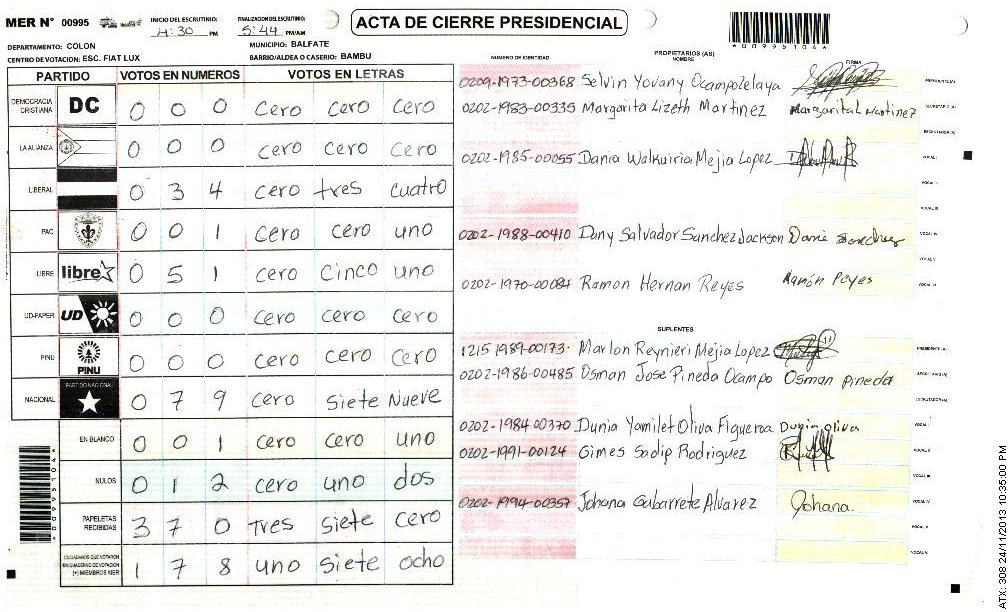 MER N° 00995
INICIO DEL ESCRUTINIO:
4:30 PM
FINALIZACION DEL ESCRUTINIO:
5:44 PM/AM
ACTA DE CIERRE PRESIDENCIAL
*009951046*
DEPARTAMENTO: COLON
MUNICIPIO: BALFATE
CENTRO DE VOTACION: ESC. FIAT LUX
BARRIO/ALDEA O CASERIO: BAMBU
PARTIDO VOTOS EN NUMEROS VOTOS EN LETRAS
DEMOCRACIA CRISTIANA DC 0 0 0 cero cero cero
LA ALIANZA 0 0 0 cero cero cero
LIBERAL 0 3 4 cero tres cuatro
PAC 0 0 1 cero cero uno
LIBRE libre 0 5 1 cero cinco uno
UD-FAPER UD 0 0 0 cero cero cero
PINU PINU 0 0 0 cero cero cero
NACIONAL PARTIDO NACIONAL 0 7 9 cero siete Nueve
EN BLANCO 0 0 1 cero cero uno
NULOS 0 1 2 cero uno dos
PAPELETAS RECIBIDAS 3 7 0 Tres siete cero
CIUDADANOS QUE VOTARON EN CUADERNO DE VOTACION (+) MIEMBROS MER 1 7 8 uno siete ocho
*009951046*
NUMERO DE IDENTIDAD
PROPIETARIOS (AS)
NOMBRE
FIRMA
0209-1973-00368 Selvin Yovany Ocampo Zelaya PRESIDENTE(A)
0202-1983-00335 Margarita Lizeth Martinez Margarita L Martinez SECRETARIO(A)
ESCRUTADOR(A)
0202-1985-00055 Dania Walkuiria Mejia Lopez VOCAL I
VOCAL II
VOCAL III
0202-1988-00410 Dany Salvador Sanchez Jackson VOCAL IV
VOCAL V
0202-1970-00084 Ramon Hernan Reyes Ramón Reyes VOCAL VI
SUPLENTES
1215 1989-00173- Marlon Reynieri Mejia Lopez PRESIDENTE(A)
0202-1986-00485 Osman Jose Pineda Ocampo Osman pineda
ESCRUTADOR(A)
0202-1984-00370 Dunia Yamilet Oliva Figueroa Dunia oliva VOCAL I
0202-1991-00124 Gimes Sadip Rodriguez VOCAL II
VOCAL III
0202-1994-00357 Johana Gabarrete Alvarez Johana. VOCAL IV
VOCAL V
ATX: 308 24/11/2013 10:35:00 PM